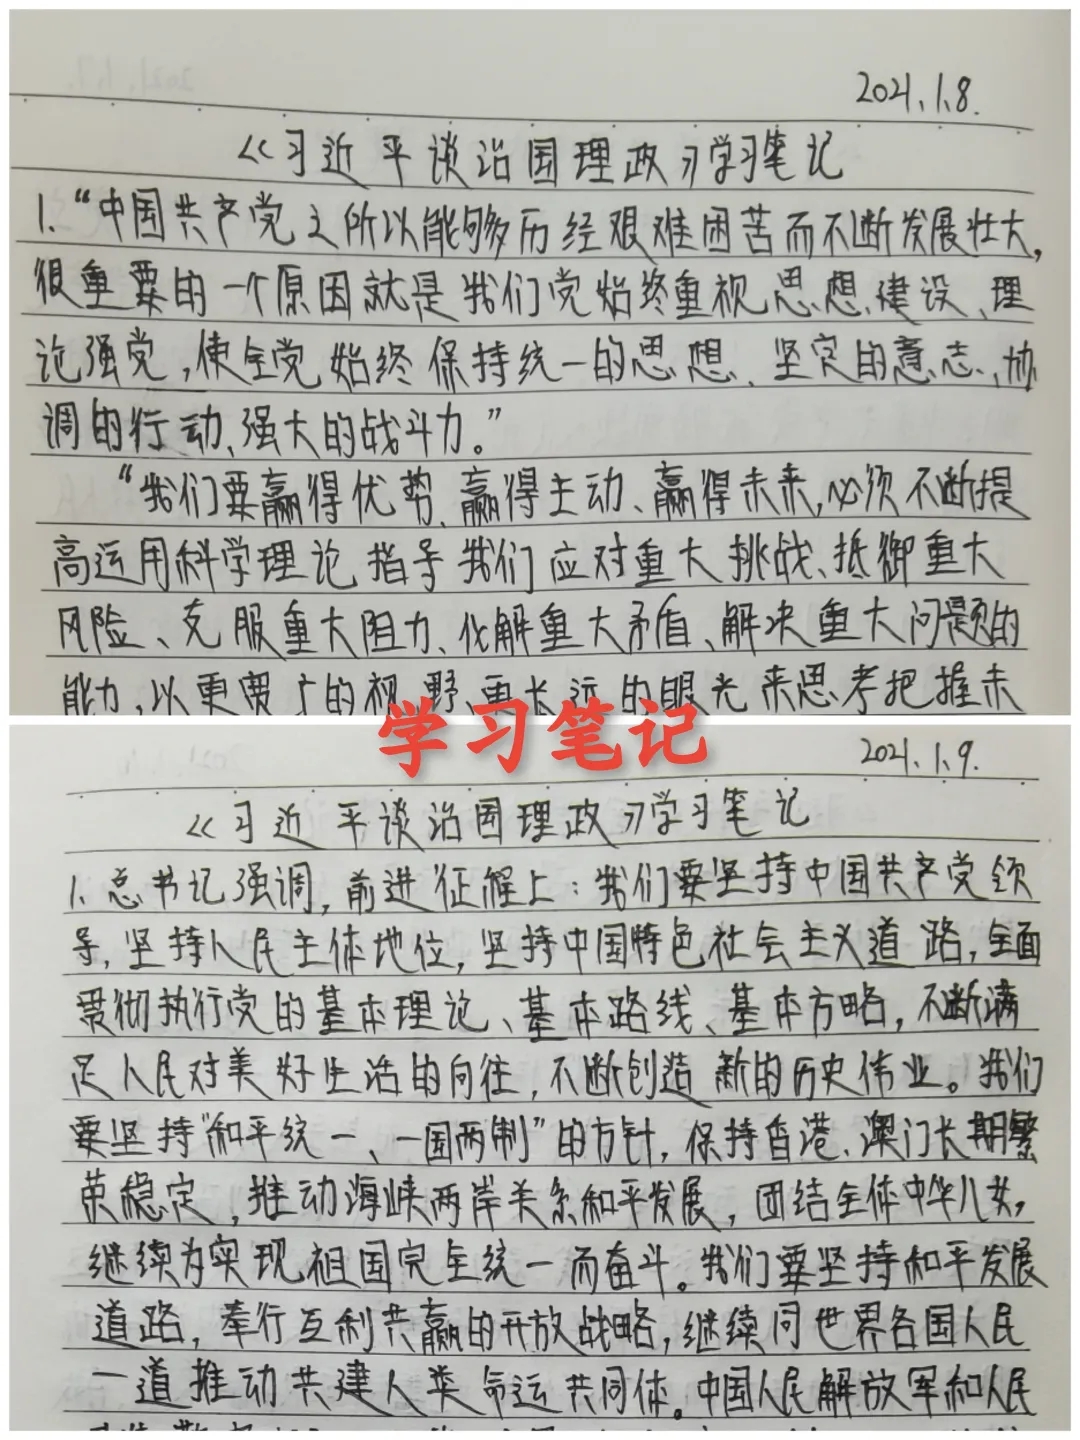 2021.1.8.
《习近平谈治国理政》学习笔记
1.“中国共产党之所以能够历经艰难困苦而不断发展壮大,
很重要的一个原因就是我们党始终重视思想建设、理
论强党,使全党始终保持统一的思想、坚定的意志、协
调的行动、强大的战斗力。”
“我们要赢得优势、赢得主动、赢得未来,必须不断提
高运用科学理论指导我们应对重大挑战、抵御重大
风险、克服重大阻力、化解重大矛盾、解决重大问题的
能力,以更宽广的视野、更长远的眼光来思考把握未
学习笔记
2021.1.9.
《习近平谈治国理政》学习笔记
1.总书记强调,前进征程上:我们要坚持中国共产党领
导,坚持人民主体地位,坚持中国特色社会主义道路,全面
贯彻执行党的基本理论、基本路线、基本方略,不断满
足人民对美好生活的向往,不断创造新的历史伟业。我们
要坚持“和平统一、一国两制”的方针,保持香港、澳门长期繁
荣稳定,推动海峡两岸关系和平发展,团结全体中华儿女,
继续为实现祖国完全统一而奋斗。我们要坚持和平发展
道路,奉行互利共赢的开放战略,继续同世界各国人民
一道推动共建人类命运共同体。中国人民解放军和人民